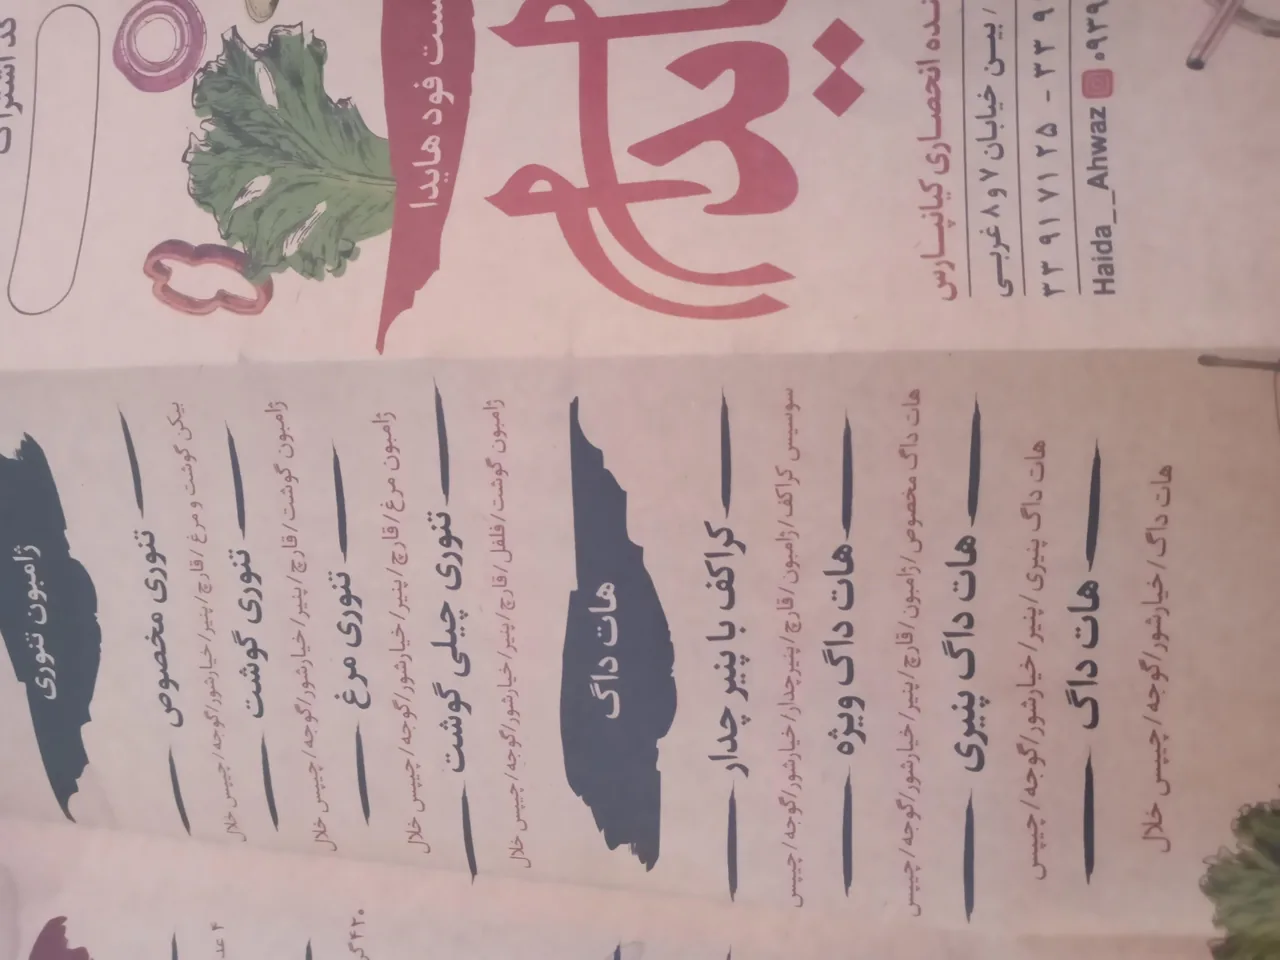 کد اشتراک
فست فود هایدا
هایدا
نده انحصاری کیانپارس
، بین خیابان ۷ و ۸ غربی
۳۳ ۹۱ ۷۱ ۲۵ - ۳۳ ۹
Haida__Ahwaz ۰۹۳۹
ژامبون تنوری
تنوری مخصوص
بیکن گوشت و مرغ / قارچ / پنیر / خیارشور / گوجه / چیپس خلال
تنوری گوشت
ژامبون گوشت / قارچ / پنیر / خیارشور / گوجه / چیپس خلال
تنوری مرغ
ژامبون مرغ / قارچ / پنیر / خیارشور / گوجه / چیپس خلال
تنوری چیلی گوشت
ژامبون گوشت / فلفل / قارچ / پنیر / خیارشور / گوجه / چیپس خلال
هات داگ
کراکف با پنیر چدار
سوسیس کراکف / ژامبون / قارچ / پنیر چدار / خیارشور / گوجه / چیپس
هات داگ ویژه
هات داگ مخصوص / ژامبون / قارچ / پنیر / خیارشور / گوجه / چیپس
هات داگ پنیری
هات داگ پنیری / پنیر / خیارشور / گوجه / چیپس
هات داگ
هات داگ / خیارشور / گوجه / چیپس خلال
۴ عد
۴۲۰ گر